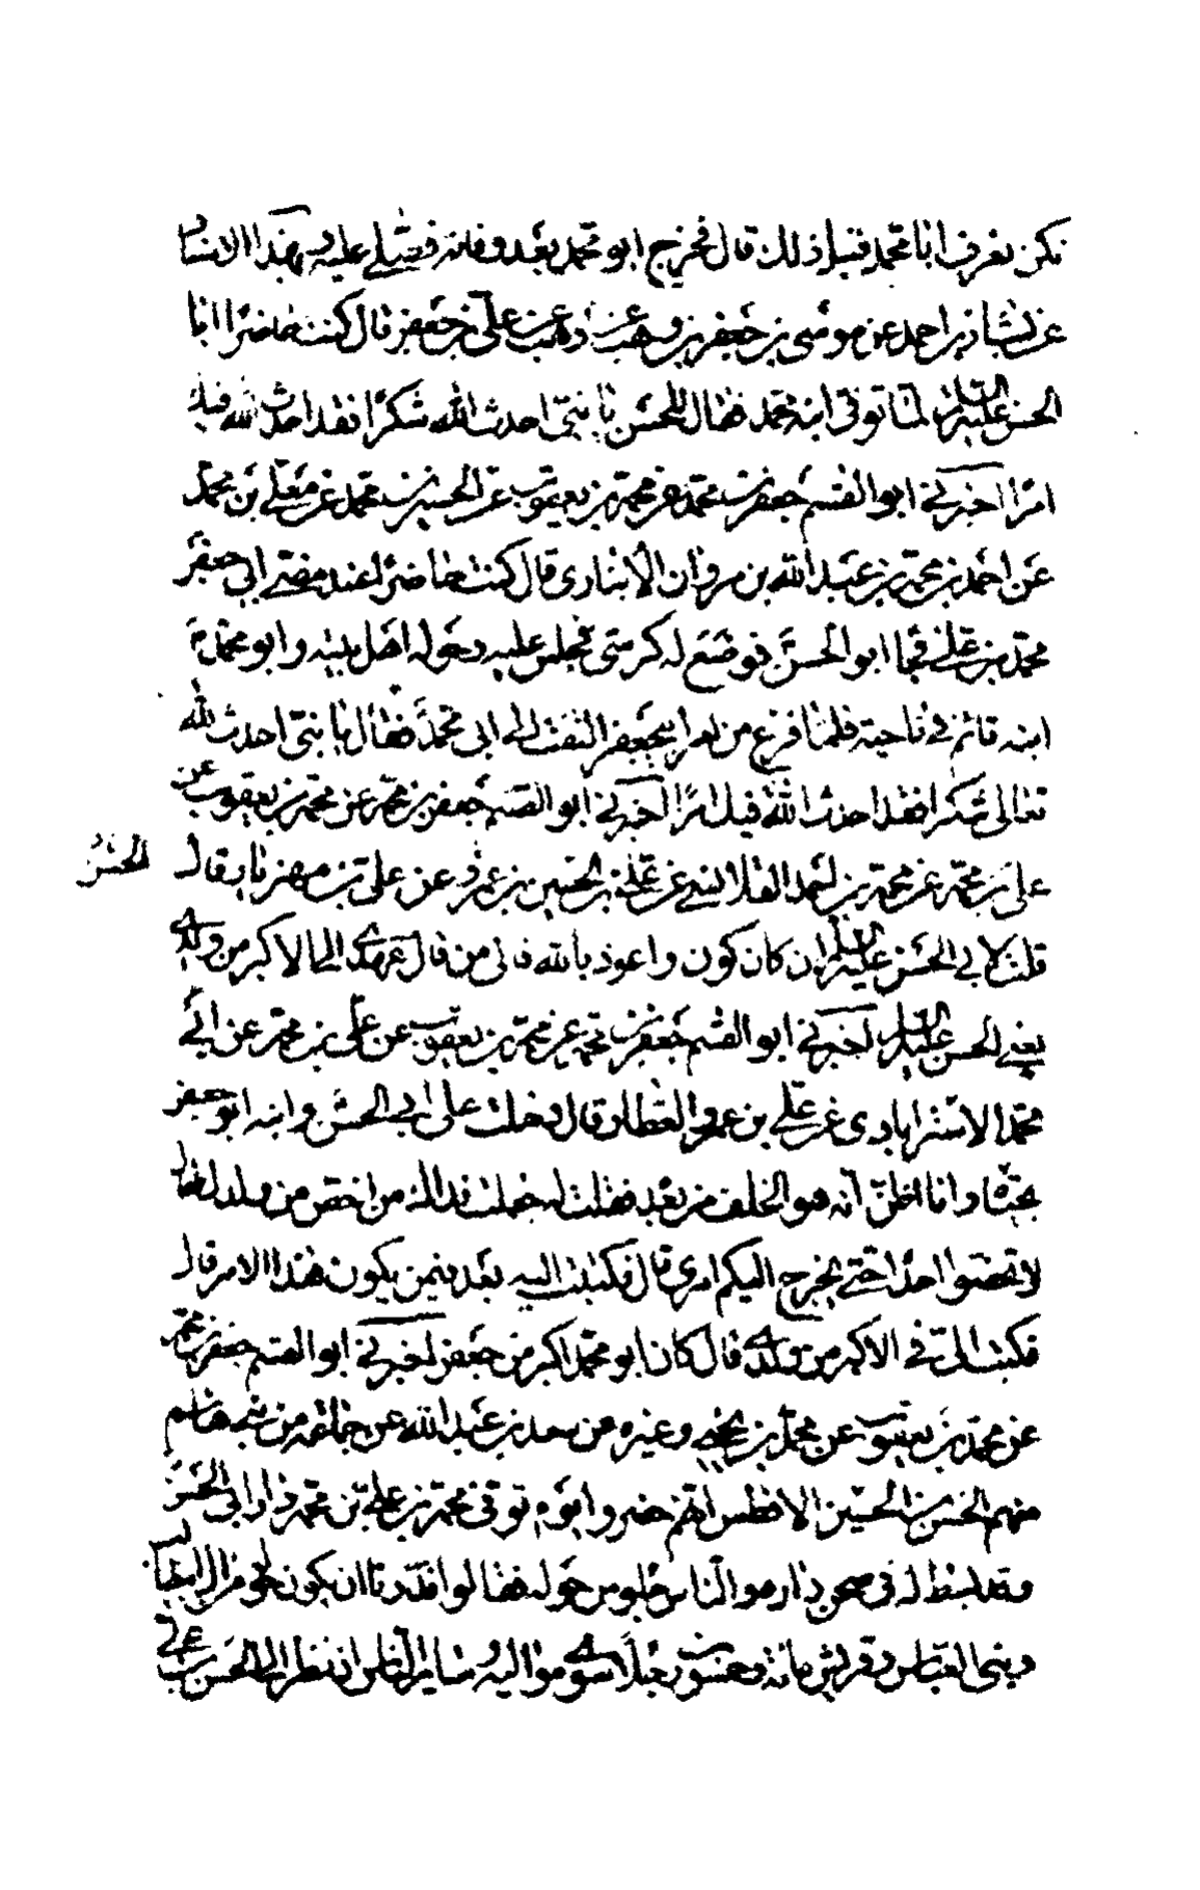 نكن نعرف ابا محمد قبل ذلك قال فخرج ابو محمد بعد وفاته فصلى عليه وبهذا الاسناد
عن بشار بن احمد عن موسى بن جعفر بن وهب عن على بن جعفر قال كنت حاضرا ابا
الحسن عليه السلام لما توفى ابنه محمد فقال للحسن يا بنى احدث لله شكرا فقد احدث الله فيك
امرا اخبرني ابو القسم جعفر بن محمد عن محمد بن يعقوب عن الحسين بن محمد عن معلى بن محمد
عن احمد بن محمد بن عبد الله بن مروان الانبارى قال كنت حاضرا عند مضى ابي جعفر
محمد بن على فجا ابو الحسن فوضع له كرسى فجلس عليه وحوله اهل بيته وابو محمد
ابنه قائم في ناحية فلما فرغ من امر ابي جعفر التفت الى ابى محمد فقال يا بنى احدث لله
تعالى شكرا فقد احدث الله فيك امرا اخبرني ابو القسم جعفر بن محمد عن محمد بن يعقوب عن
على بن محمد عن محمد بن احمد القلانسي عن على بن الحسين بن عمرو عن على بن مهزيار قال
قلت لابي الحسن عليه السلام ان كان كون واعوذ بالله فالى من قال عهدى الى الاكبر من ولدى
يعني الحسن عليه السلام اخبرني ابو القسم جعفر بن محمد عن محمد بن يعقوب عن على بن محمد عن ابي
محمد الاسترابادى عن علي بن عمرو العطار قال دخلت على ابي الحسن وابنه ابو جعفر
وانا اظن انه هو الخلف من بعده فقلت له جعلت فداك من اخص من ولدك فقال
لا تخصوا احدا حتى يخرج اليكم امرى قال فكتبت اليه بعد فيمن يكون هذا الامر قال
فكتب الى في الاكبر من ولدى قال كان ابو محمد اكبر من جعفر اخبرني ابو القسم جعفر بن محمد
عن محمد بن يعقوب عن محمد بن يحيى وغيره عن سعد بن عبد الله عن جماعة من بني هاشم
منهم الحسن بن الحسين الافطس انهم حضروا يوم توفى محمد بن على بن محمد دار ابى الحسن
وقد بسط له فى صحن داره والناس جلوس حوله فقالوا قدرنا ان يكون حوله من ال ابيطالب
وبنى العباس وقريش مائة وخمسون رجلا سوى مواليه وساير الناس اذ نظر الى الحسن بن على
الحسن